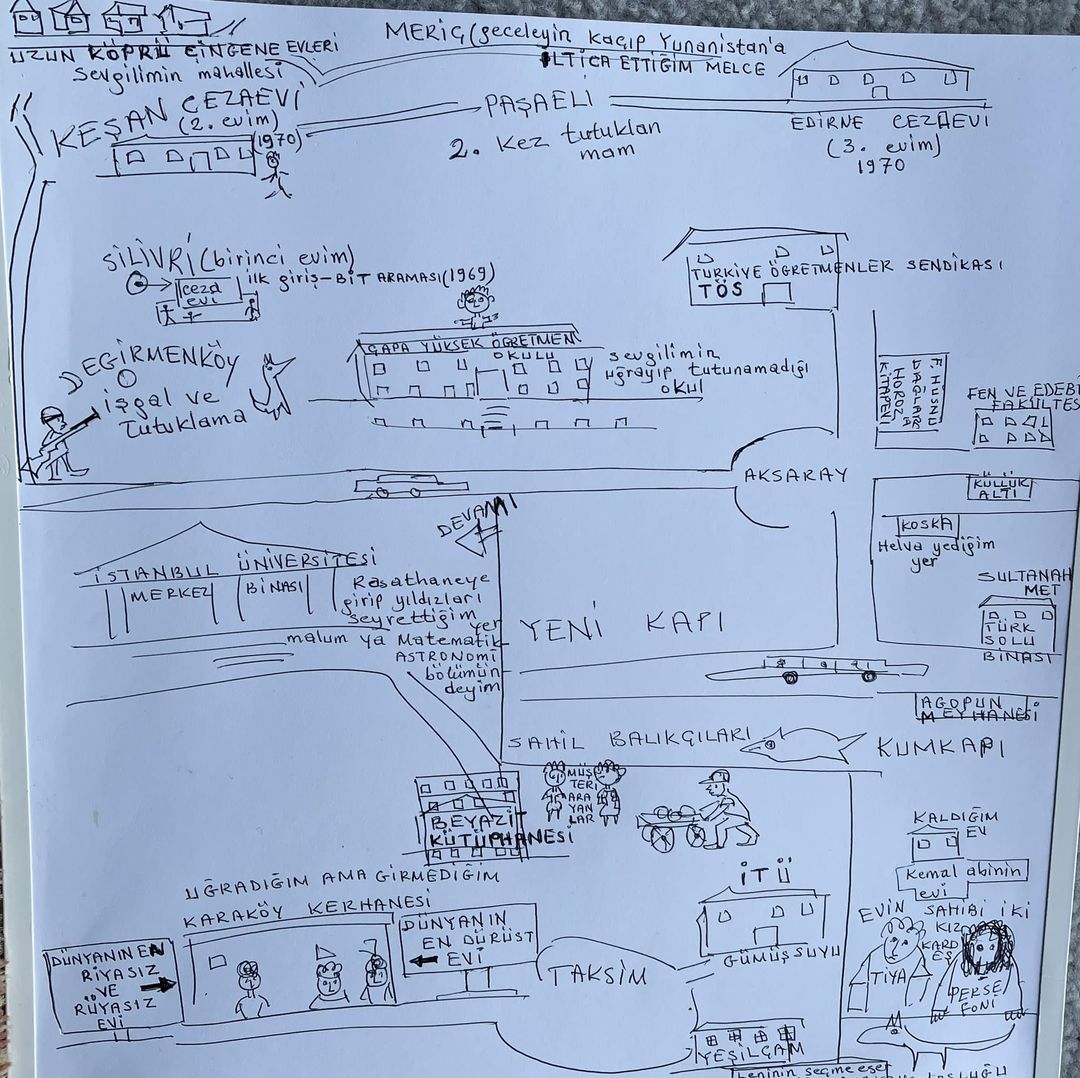 UZUN KÖPRÜ ÇİNGENE EVLERİ
Sevgilimin mahallesi
MERİÇ (geceleyin kaçıp Yunanistan'a
İLTİCA ETTİĞİM MELCE
KEŞAN CEZAEVİ
(2. evim)
(1970)
PAŞAELİ
2. Kez tutuklan
mam
EDİRNE CEZAEVİ
(3. evim)
1970
SİLİVRİ (birinci evim)
ilk giriş-BİT ARAMASI (1969)
ceza
evi
TÜRKİYE ÖĞRETMENLER SENDİKASI
TÖS
DEĞİRMENKÖY
işgal ve
tutuklama
ÇAPA YÜKSEK ÖĞRETMEN
OKULU
sevgilimin
uğrayıp tutunamadığı
okul
F. HÜSNÜ
DAĞLAR
HOROZ
KİTAPEVİ
FEN VE EDEBİ
FAKÜLTES
AKSARAY
KÜLLÜK
ALTI
KOSKA
Helva yediğim
yer
SULTANAH
MET
TÜRK
SOLU
BİNASI
DEVAMI
İSTANBUL ÜNİVERSİTESİ
MERKEZ BİNASI
Rasathaneye
girip yıldızları
seyrettiğim
yer
malum ya Matematik
ASTRONOMİ
bölümün
deyim
YENİ KAPI
AGOPUN
MEYHANESİ
SAHİL BALIKÇILARI
KUMKAPI
BEYAZIT
KÜTÜPHANESİ
MÜŞ
TERİ
ARA
YAN
LAR
KALDIĞIM
EV
Kemal abinin
evi
EVİN SAHİBİ İKİ
KIZ
KARD
EŞ
TİYA
PERSE
FONİ
UĞRADIĞIM AMA GİRMEDİĞİM
KARAKÖY KERHANESİ
DÜNYANIN EN
RİYASIZ
VE
RÜYASIZ
EVİ
DÜNYANIN
EN DÜRÜST
EVİ
TAKSİM
İTÜ
GÜMÜŞSUYU
YEŞİLÇAM
Leninin seçme eser